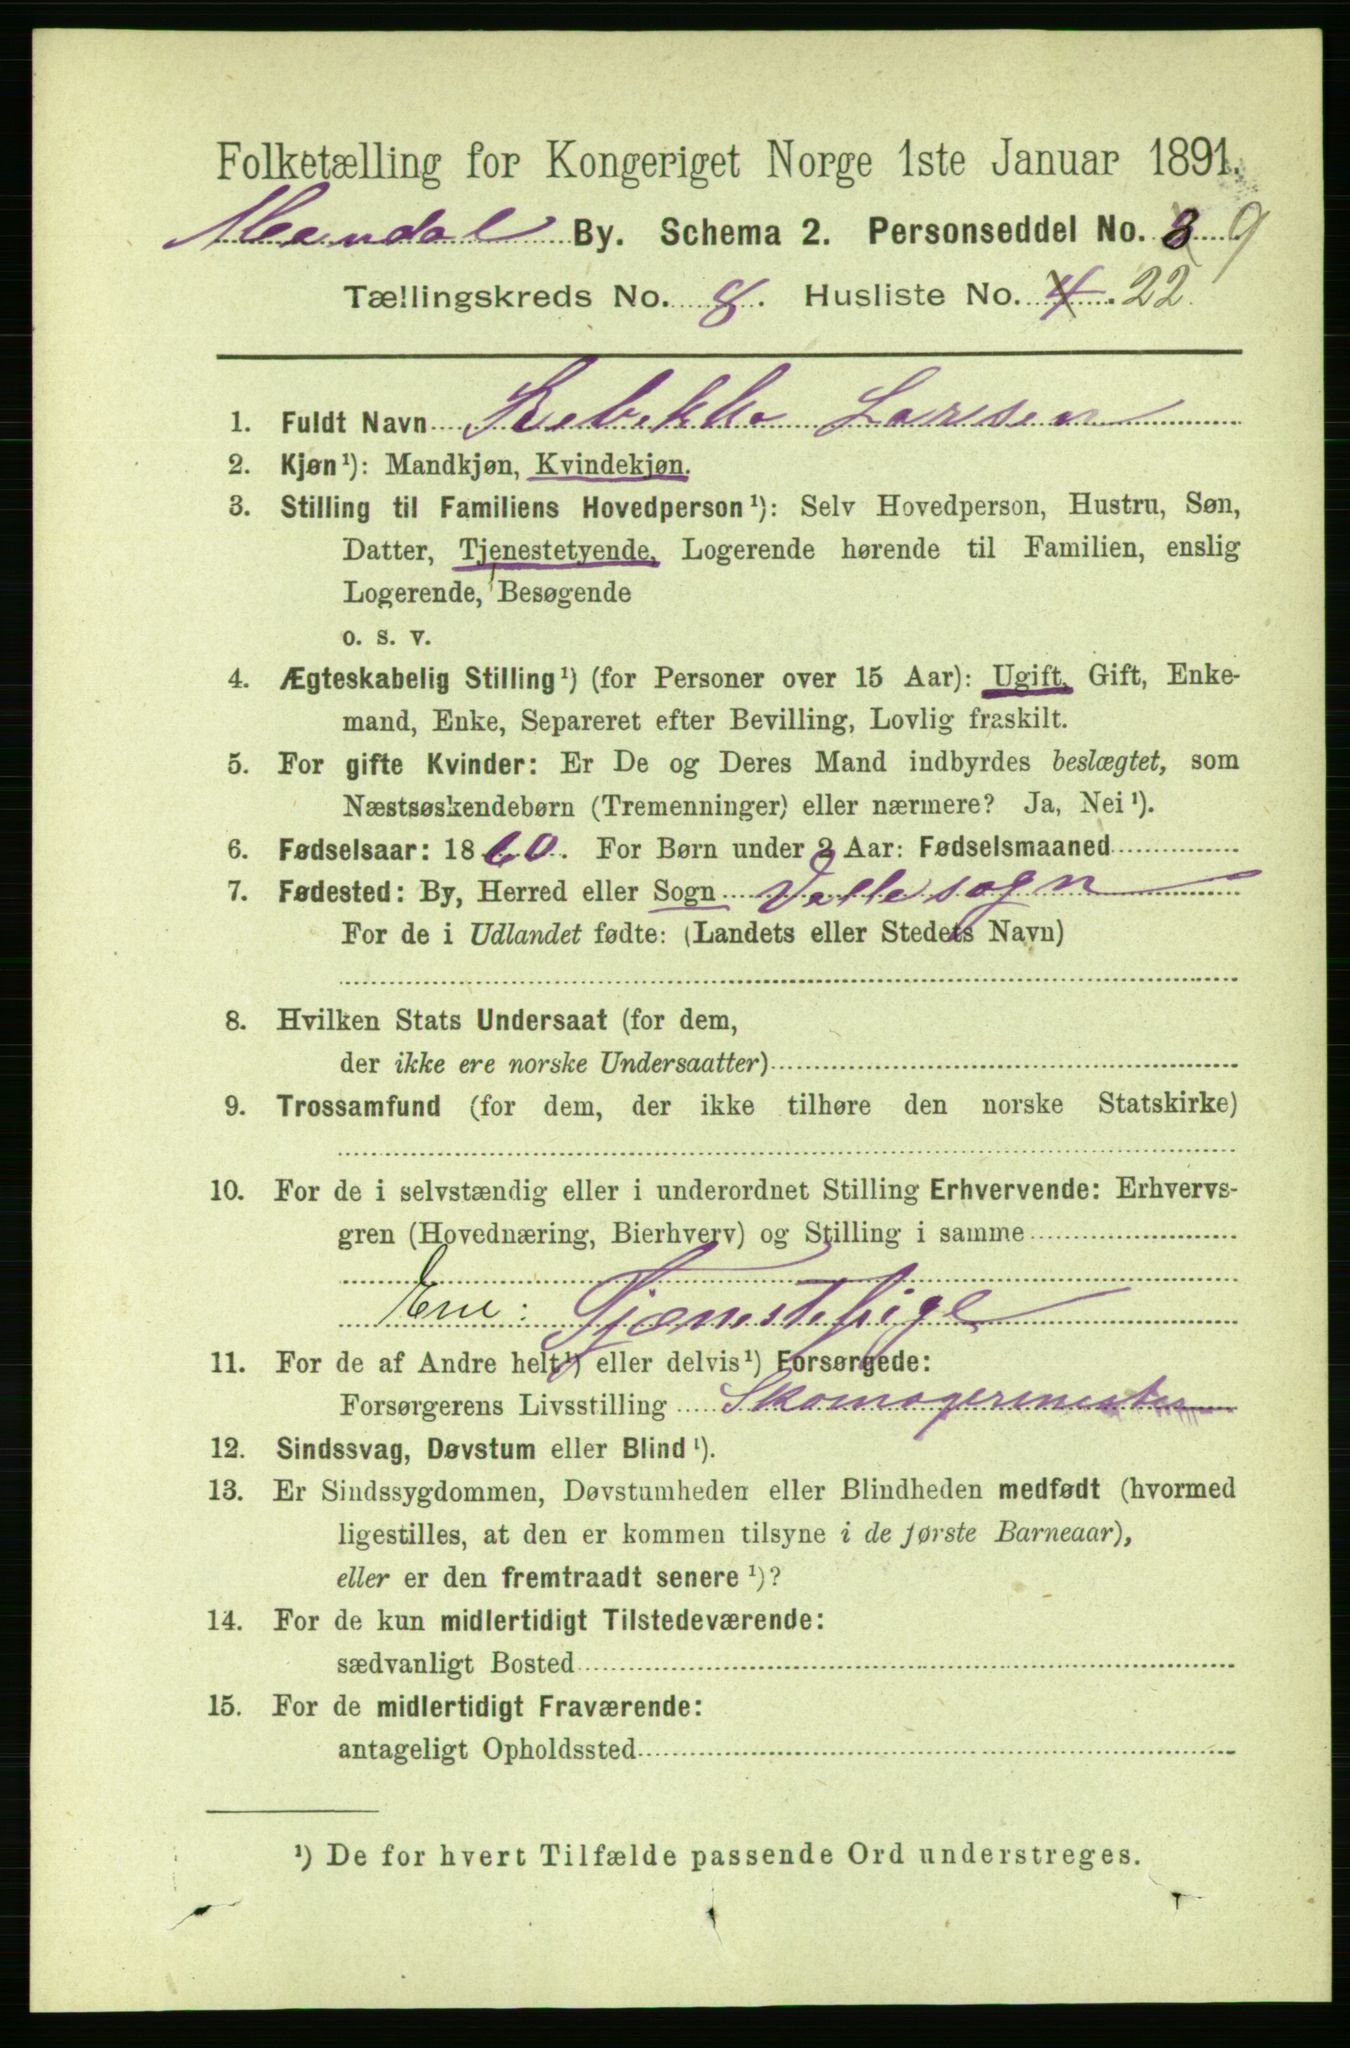 Folketælling for Kongeriget Norge 1ste Januar 1891.
Mandal By. Schema 2. Personseddel No. 3 9
Tællingskreds No. 8. Husliste No. 4. 22
1. Fuldt Navn Rebekka Larsen
2. Kjøn¹): Mandkjøn, Kvindekjøn.
3. Stilling til Familiens Hovedperson¹): Selv Hovedperson, Hustru, Søn,
Datter, Tjenestetyende, Logerende hørende til Familien, enslig
Logerende, Besøgende
o. s. v.
4. Ægteskabelig Stilling¹) (for Personer over 15 Aar): Ugift, Gift, Enke-
mand, Enke, Separeret efter Bevilling, Lovlig fraskilt.
5. For gifte Kvinder: Er De og Deres Mand indbyrdes beslægtet, som
Næstsøskendebørn (Tremenninger) eller nærmere? Ja, Nei¹).
6. Fødselsaar: 1860. For Børn under 2 Aar: Fødselsmaaned
7. Fødested: By, Herred eller Sogn Valle sogn
For de i Udlandet fødte: (Landets eller Stedets Navn)
8. Hvilken Stats Undersaat (for dem,
der ikke ere norske Undersaatter)
9. Trossamfund (for dem, der ikke tilhøre den norske Statskirke)
10. For de i selvstændig eller i underordnet Stilling Erhvervende: Erhvervs-
gren (Hovednæring, Bierhverv) og Stilling i samme
Ene: Tjenestepige
11. For de af Andre helt¹) eller delvis¹) Forsørgede:
Forsørgerens Livsstilling Skomagermester
12. Sindssvag, Døvstum eller Blind¹).
13. Er Sindssygdommen, Døvstumheden eller Blindheden medfødt (hvormed
ligestilles, at den er kommen tilsyne i de første Barneaar),
eller er den fremtraadt senere¹)?
14. For de kun midlertidigt Tilstedeværende:
sædvanligt Bosted
15. For de midlertidigt Fraværende:
antageligt Opholdssted
¹) De for hvert Tilfælde passende Ord understreges.